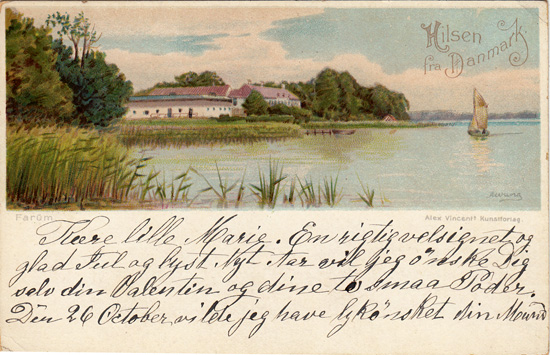 Hilsen
fra Danmark.
Farum
Alex Vincents Kunstforlag.
Kære lille Marie. En rigtig velsignet og
glad Jul og lyst Nyt Aar vil jeg ønske Dig
selv din Valentin og dine to smaa Poder.
Den 26 October, vilde jeg have lykønsket din Mand